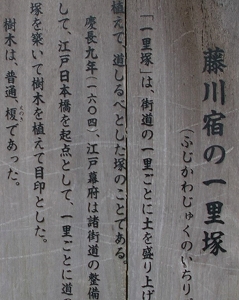 藤川宿の一里塚
(ふじかわじゅくのいちり
「一里塚」は、街道の一里ごとに土を盛り上げ
植えて、道しるべとした塚のことである。
慶長九年(一六〇四)、江戸幕府は諸街道の整備
して、江戸日本橋を起点として、一里ごとに道の
塚を築いて樹木を植えて目印とした。
樹木は、普通 榎であった。
えのき